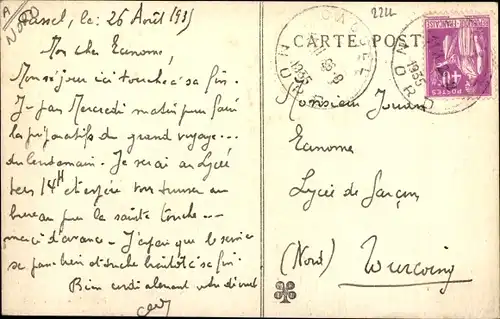 A
NORD
Cassel, le: 26 Août 1935
Mon cher Econome,
Mon séjour ici touche à sa fin.
Je pars Mercredi matin pour faire
les préparatifs du grand voyage...
du lendemain. Je serai au Lycée
vers 14H et espère vous trouver au
bureau pour la sainte touche...
merci d'avance - J'espère que le service
se passe bien et touche bientôt à sa fin.
Bien cordialement votre dévoué
2222
CARTE POSTALE
CASSEL
NORD
1935
POSTES
40
Monsieur
Econome
Lycée de Garçons
(Nord) Turcoing